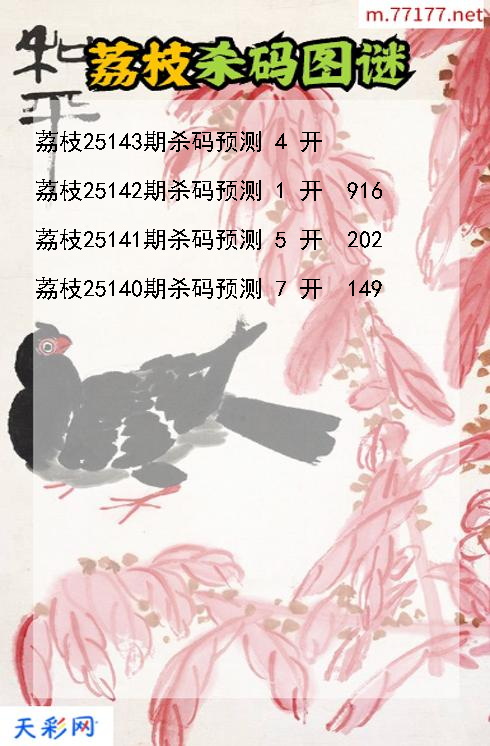 m.77177.net
和平
荔枝杀码图谜
荔枝25143期杀码预测 4 开
荔枝25142期杀码预测 1 开 916
荔枝25141期杀码预测 5 开 202
荔枝25140期杀码预测 7 开 149
天彩网